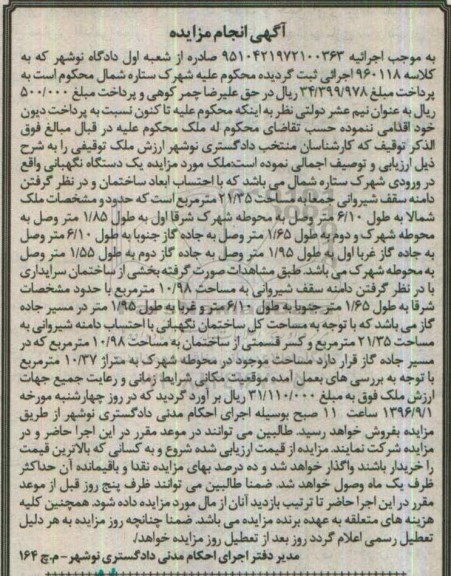 آگهی انجام مزایده
به موجب اجرائیه ۹۵۱۰۴۲۱۹۷۲۱۰۰۳۶۳ صادره از شعبه اول دادگاه نوشهر که به
کلاسه ۹۶۰۱۱۸ اجرائی ثبت گردیده محکوم علیه شهرک ستاره شمال محکوم است به
پرداخت مبلغ ۳۴/۳۹۹/۹۷۸ ریال در حق علیرضا چمر کوهی و پرداخت مبلغ ۵۰۰/۰۰۰
ریال به عنوان نیم عشر دولتی نظر به اینکه محکوم علیه تا کنون نسبت به پرداخت دیون
خود اقدامی ننموده حسب تقاضای محکوم له ملک محکوم علیه در قبال مبالغ فوق
الذکر توقیف که کارشناسان منتخب دادگستری نوشهر ارزش ملک توقیفی را به شرح
ذیل ارزیابی و توصیف اجمالی نموده است:ملک مورد مزایده یک دستگاه نگهبانی واقع
در ورودی شهرک ستاره شمال می باشد که با احتساب ابعاد ساختمان و در نظر گرفتن
دامنه سقف شیروانی جمعا به مساحت ۲۱/۳۵ مترمربع است که حدود و مشخصات ملک
شمالا به طول ۶/۱۰ متر وصل به محوطه شهرک شرقا اول به طول ۱/۸۵ متر وصل به
محوطه شهرک و دوم به طول ۱/۶۵ متر وصل به جاده گاز جنوبا به طول ۶/۱۰ متر وصل
به جاده گاز غربا اول به طول ۱/۹۵ متر وصل به جاده گاز دوم به طول ۱/۵۵ متر وصل
به محوطه شهرک می باشد. طبق مشاهدات صورت گرفته بخشی از ساختمان سرایداری
با در نظر گرفتن دامنه سقف شیروانی به مساحت ۱۰/۹۸ مترمربع با حدود مشخصات
شرقا به طول ۱/۶۵ متر جنوبا به طول ۶/۱۰ متر و غربا به طول ۱/۹۵ متر در مسیر جاده
گاز می باشد که با توجه به مساحت کل ساختمان نگهبانی با احتساب دامنه شیروانی به
مساحت ۲۱/۳۵ مترمربع و کسر قسمتی از ساختمان به مساحت ۱۰/۹۸ مترمربع که در
مسیر جاده گاز قرار دارد مساحت موجود در محوطه شهرک به متراژ ۱۰/۳۷ مترمربع
با توجه به بررسی های بعمل آمده موقعیت مکانی شرایط زمانی و رعایت جمیع جهات
ارزش ملک فوق به مبلغ ۳۱/۱۱۰/۰۰۰ ریال بر آورد گردید که در روز چهارشنبه مورخه
۱۳۹۶/۹/۱ ساعت ۱۱ صبح بوسیله اجرای احکام مدنی دادگستری نوشهر از طریق
مزایده بفروش خواهد رسید. طالبین می توانند در موعد مقرر در این اجرا حاضر و در
مزایده شرکت نمایند. مزایده از قیمت ارزیابی شده شروع و به کسانی که بالاترین قیمت
را خریدار باشند واگذار خواهد شد و ده درصد بهای مزایده نقدا و باقیمانده آن حداکثر
ظرف یک ماه وصول خواهد شد. ضمنا طالبین می توانند ظرف پنج روز قبل از موعد
مقرر در این اجرا حاضر تا ترتیب بازدید آنان از مال مورد مزایده داده شود. همچنین کلیه
هزینه های متعلقه به عهده برنده مزایده می باشد. ضمنا چنانچه روز مزایده به هر دلیل
تعطیل رسمی اعلام گردد روز بعد از تعطیل روز مزایده خواهد/.
مدیر دفتر اجرای احکام مدنی دادگستری نوشهر -م.چ ۱۶۴